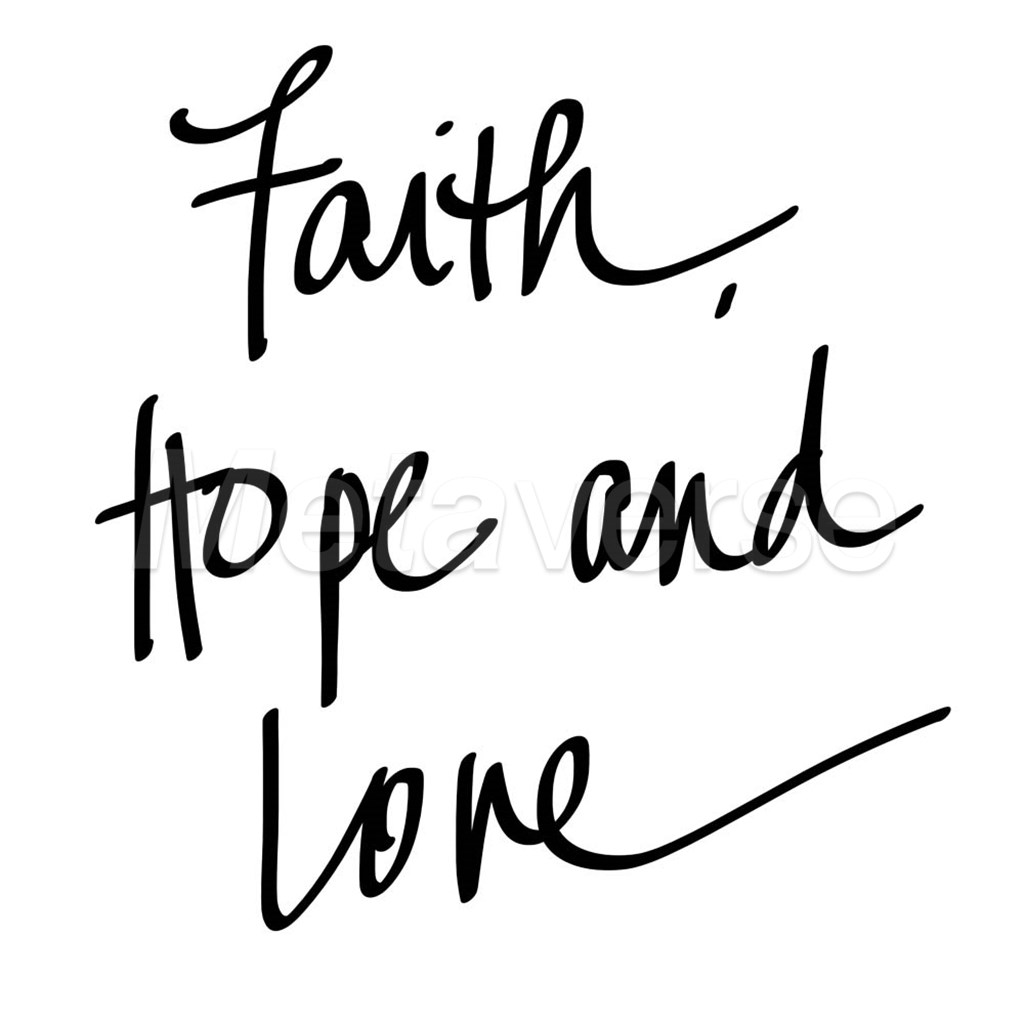 Faith,
Hope and
Love
Metaverse